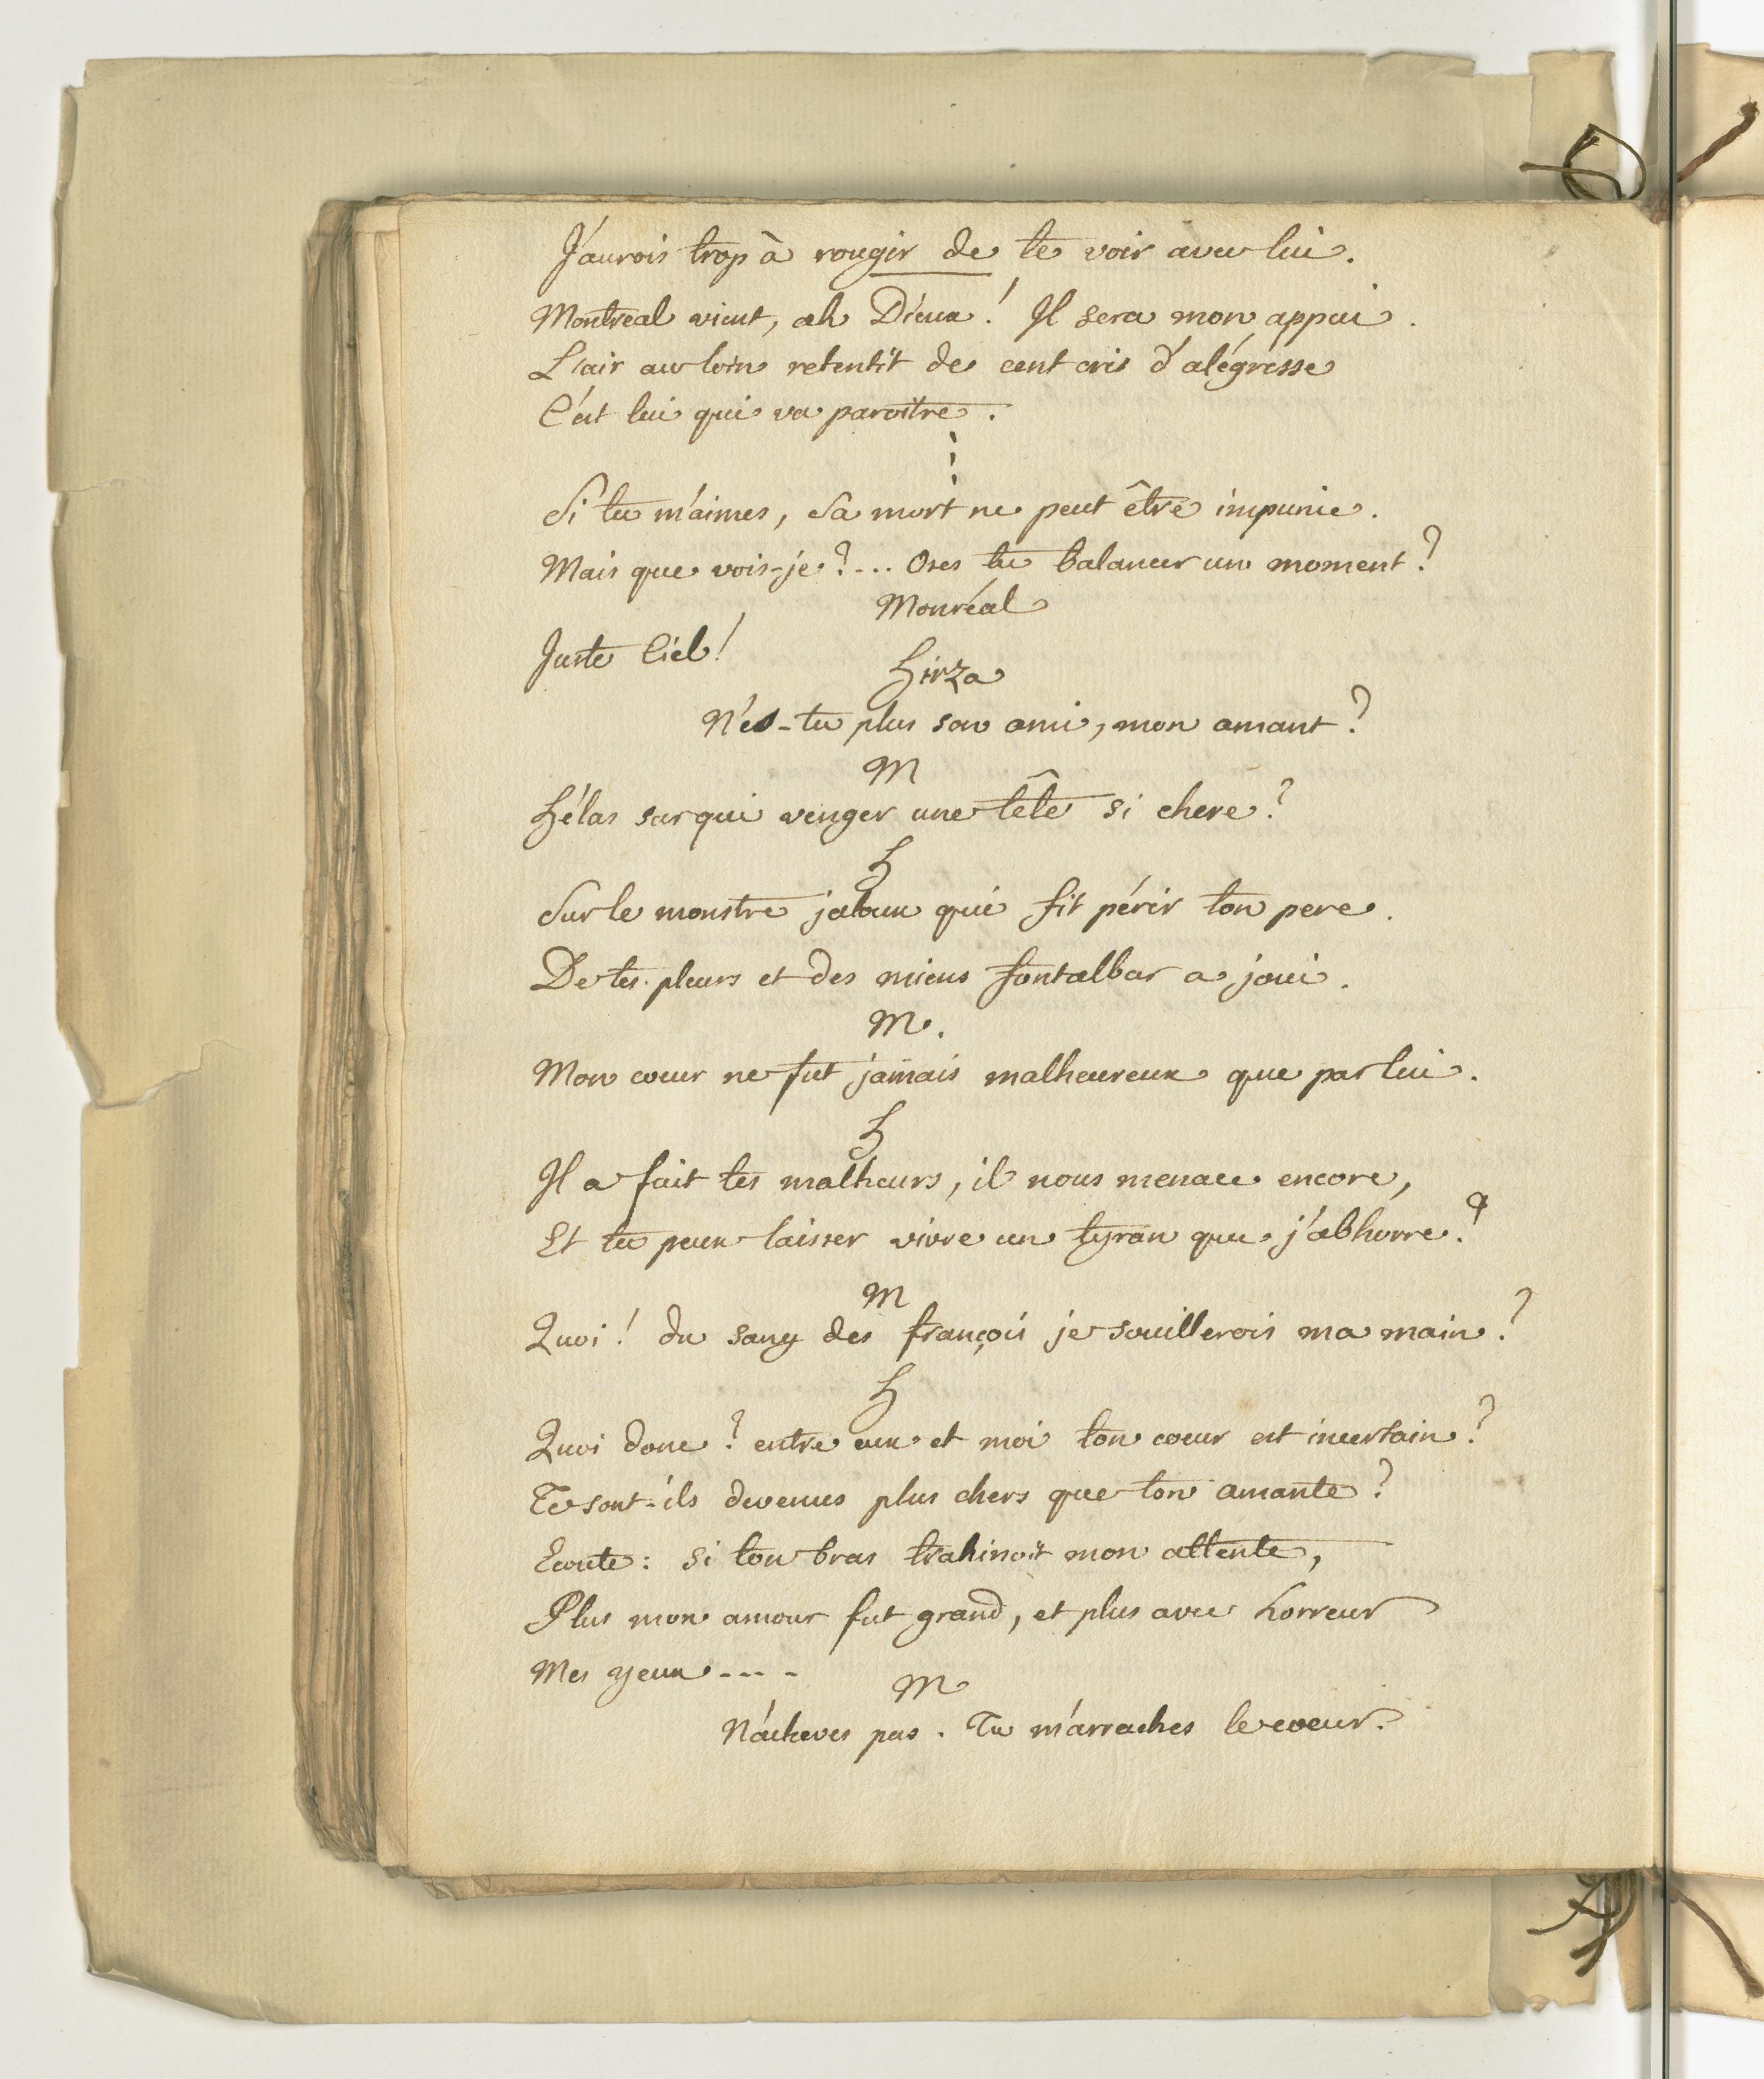 J'aurois trop à rougir de te voir avec lui.
Montreal vient, ah Dieux! Il sera mon appui.
L'air au loin retentit de cent cris d'alégresse
C'est lui qui va paroître.
Si tu m'aimes, sa mort ne peut être impunie.
Mais que vois-je?... Oses tu balancer un moment?
Monréal
Juste Ciel!
Hirza
N'es-tu plus son ami, mon amant?
M
Hélas sur qui venger une tête si chere?
H
Sur le monstre jaloux qui fit périr ton pere.
De tes pleurs et des miens fontalbar a joui.
M.
Mon coeur ne fut jamais malheureux que par lui.
H
Il a fait tes malheurs, il nous menace encore,
Et tu peux laisser vivre un tyran que j'abhorre?
M
Quoi! du sang des françois je souillerois ma main?
H
Quoi donc? entre eux et moi ton coeur est incertain?
Te sont-ils devenus plus chers que ton amante?
Ecoute: si ton bras trahissoit mon attente,
Plus mon amour fut grand, et plus avec horreur
Mes yeux ----
M
N'acheves pas. Tu m'arraches le coeur.